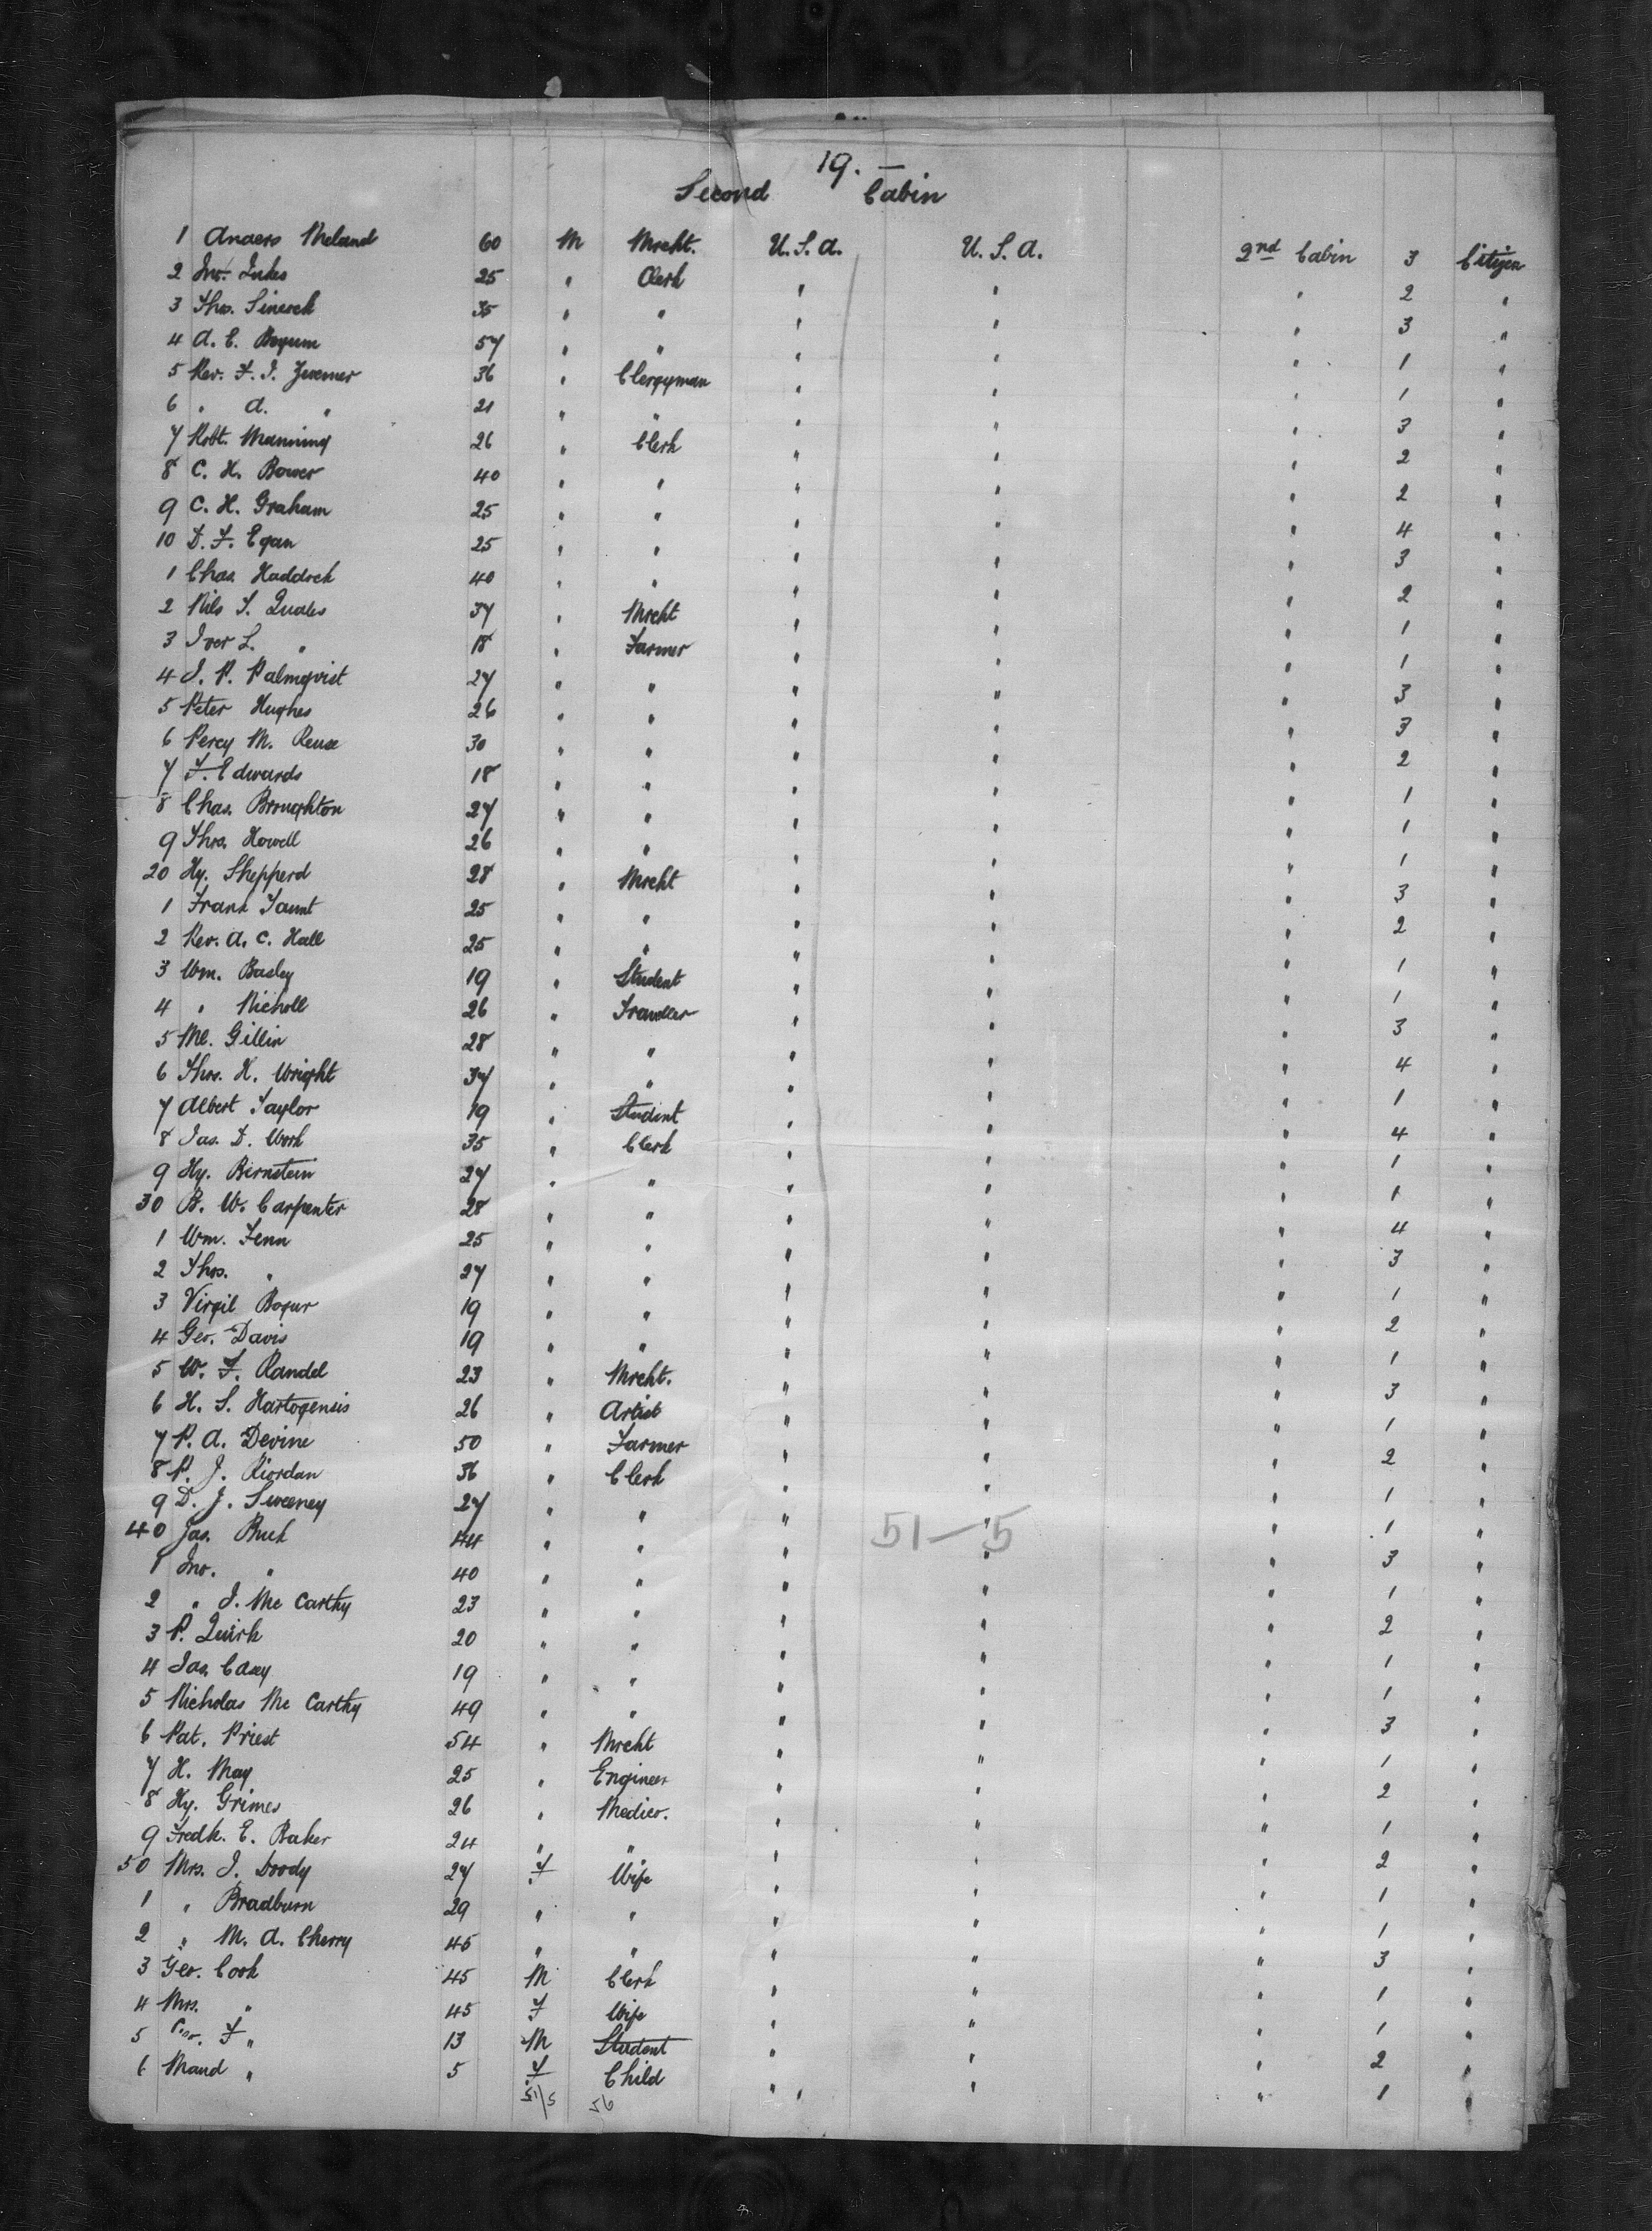 19. —
Second Cabin
1 Anders Meland 60 M Mrcht. U.S.A. U.S.A. 2nd Cabin 3 Citizen
2 Jno. 25 " Clerk " " " 2 "
3 Thos. 35 " " " " " 3 "
4 A. E. 57 " " " " " 1 "
5 Rev. F. J. Zwemer 36 " Clergyman " " " 1 "
6 " A. " 21 " " " " " 3 "
7 Robt. Manning 26 " Clerk " " " 2 "
8 C. H. Bower 40 " " " " " 2 "
9 C. H. Graham 25 " " " " " 4 "
10 D. F. Egan 25 " " " " " 3 "
1 Chas. Haddock 40 " " " " " 2 "
2 Nils S. Quales 37 " Mrcht " " " 1 "
3 Iver L. " 18 " Farmer " " " 1 "
4 J. P. Palmqvist 27 " " " " " 3 "
5 Peter Hughes 26 " " " " " 3 "
6 Percy M. 30 " " " " " 2 "
7 F. Edwards 18 " " " " " 1 "
8 Chas. Broughton 27 " " " " " 1 "
9 Thos. Howell 26 " " " " " 1 "
20 Hy. Shepperd 28 " Mrcht " " " 3 "
1 Frank Taunt 25 " " " " " 2 "
2 Rev. A. C. Hall 25 " " " " " 1 "
3 Wm. Basley 19 " Student " " " 1 "
4 " Nicholl 26 " Traveller " " " 3 "
5 Ml. Gillin 28 " " " " " 4 "
6 Thos. H. Wright 37 " " " " " 1 "
7 Albert Taylor 19 " Student " " " 4 "
8 Jas. D. Work 35 " Clerk " " " 1 "
9 Hy. Bernstein 27 " " " " " 1 "
30 B. W. Carpenter 28 " " " " " 4 "
1 Wm. Fenn 25 " " " " " 3 "
2 Thos. " 27 " " " " " 1 "
3 Virgil Bogur 19 " " " " " 2 "
4 Geo. Davis 19 " " " " " 1 "
5 W. F. Randel 23 " Mrcht. " " " 3 "
6 H. S. Hartogensis 26 " Artist " " " 1 "
7 P. A. Devine 50 " Farmer " " " 2 "
8 P. J. Riordan 36 " Clerk " " " 1 "
9 D. J. Sweeney 27 " " " " " 1 "
51—5
40 Jas. Buck 44 " " " " " 3 "
1 Jno. " 40 " " " " " 1 "
2 " J. Mc Carthy 23 " " " " " 2 "
3 P. Quirk 20 " " " " " 1 "
4 Jas. Casey 19 " " " " " 1 "
5 Nicholas Mc Carthy 49 " " " " " 3 "
6 Pat. Priest 54 " Mrcht " " " 1 "
7 H. May 25 " Engineer " " " 2 "
8 Hy. Grimes 26 " Medico. " " " 1 "
9 Fredk. E. Baker 24 " " " " " 2 "
50 Mrs. J. Doody 27 F Wife " " " 1 "
1 " Bradburn 29 " " " " " 1 "
2 " M. A. Cherry 45 " " " " " 3 "
3 Geo. Cook 45 M Clerk " " " 1 "
4 Mrs. " 45 F Wife " " " 1 "
5 F " 13 M Student " " " 2 "
6 Maud " 5 F Child " " " 1 "
51/5 56